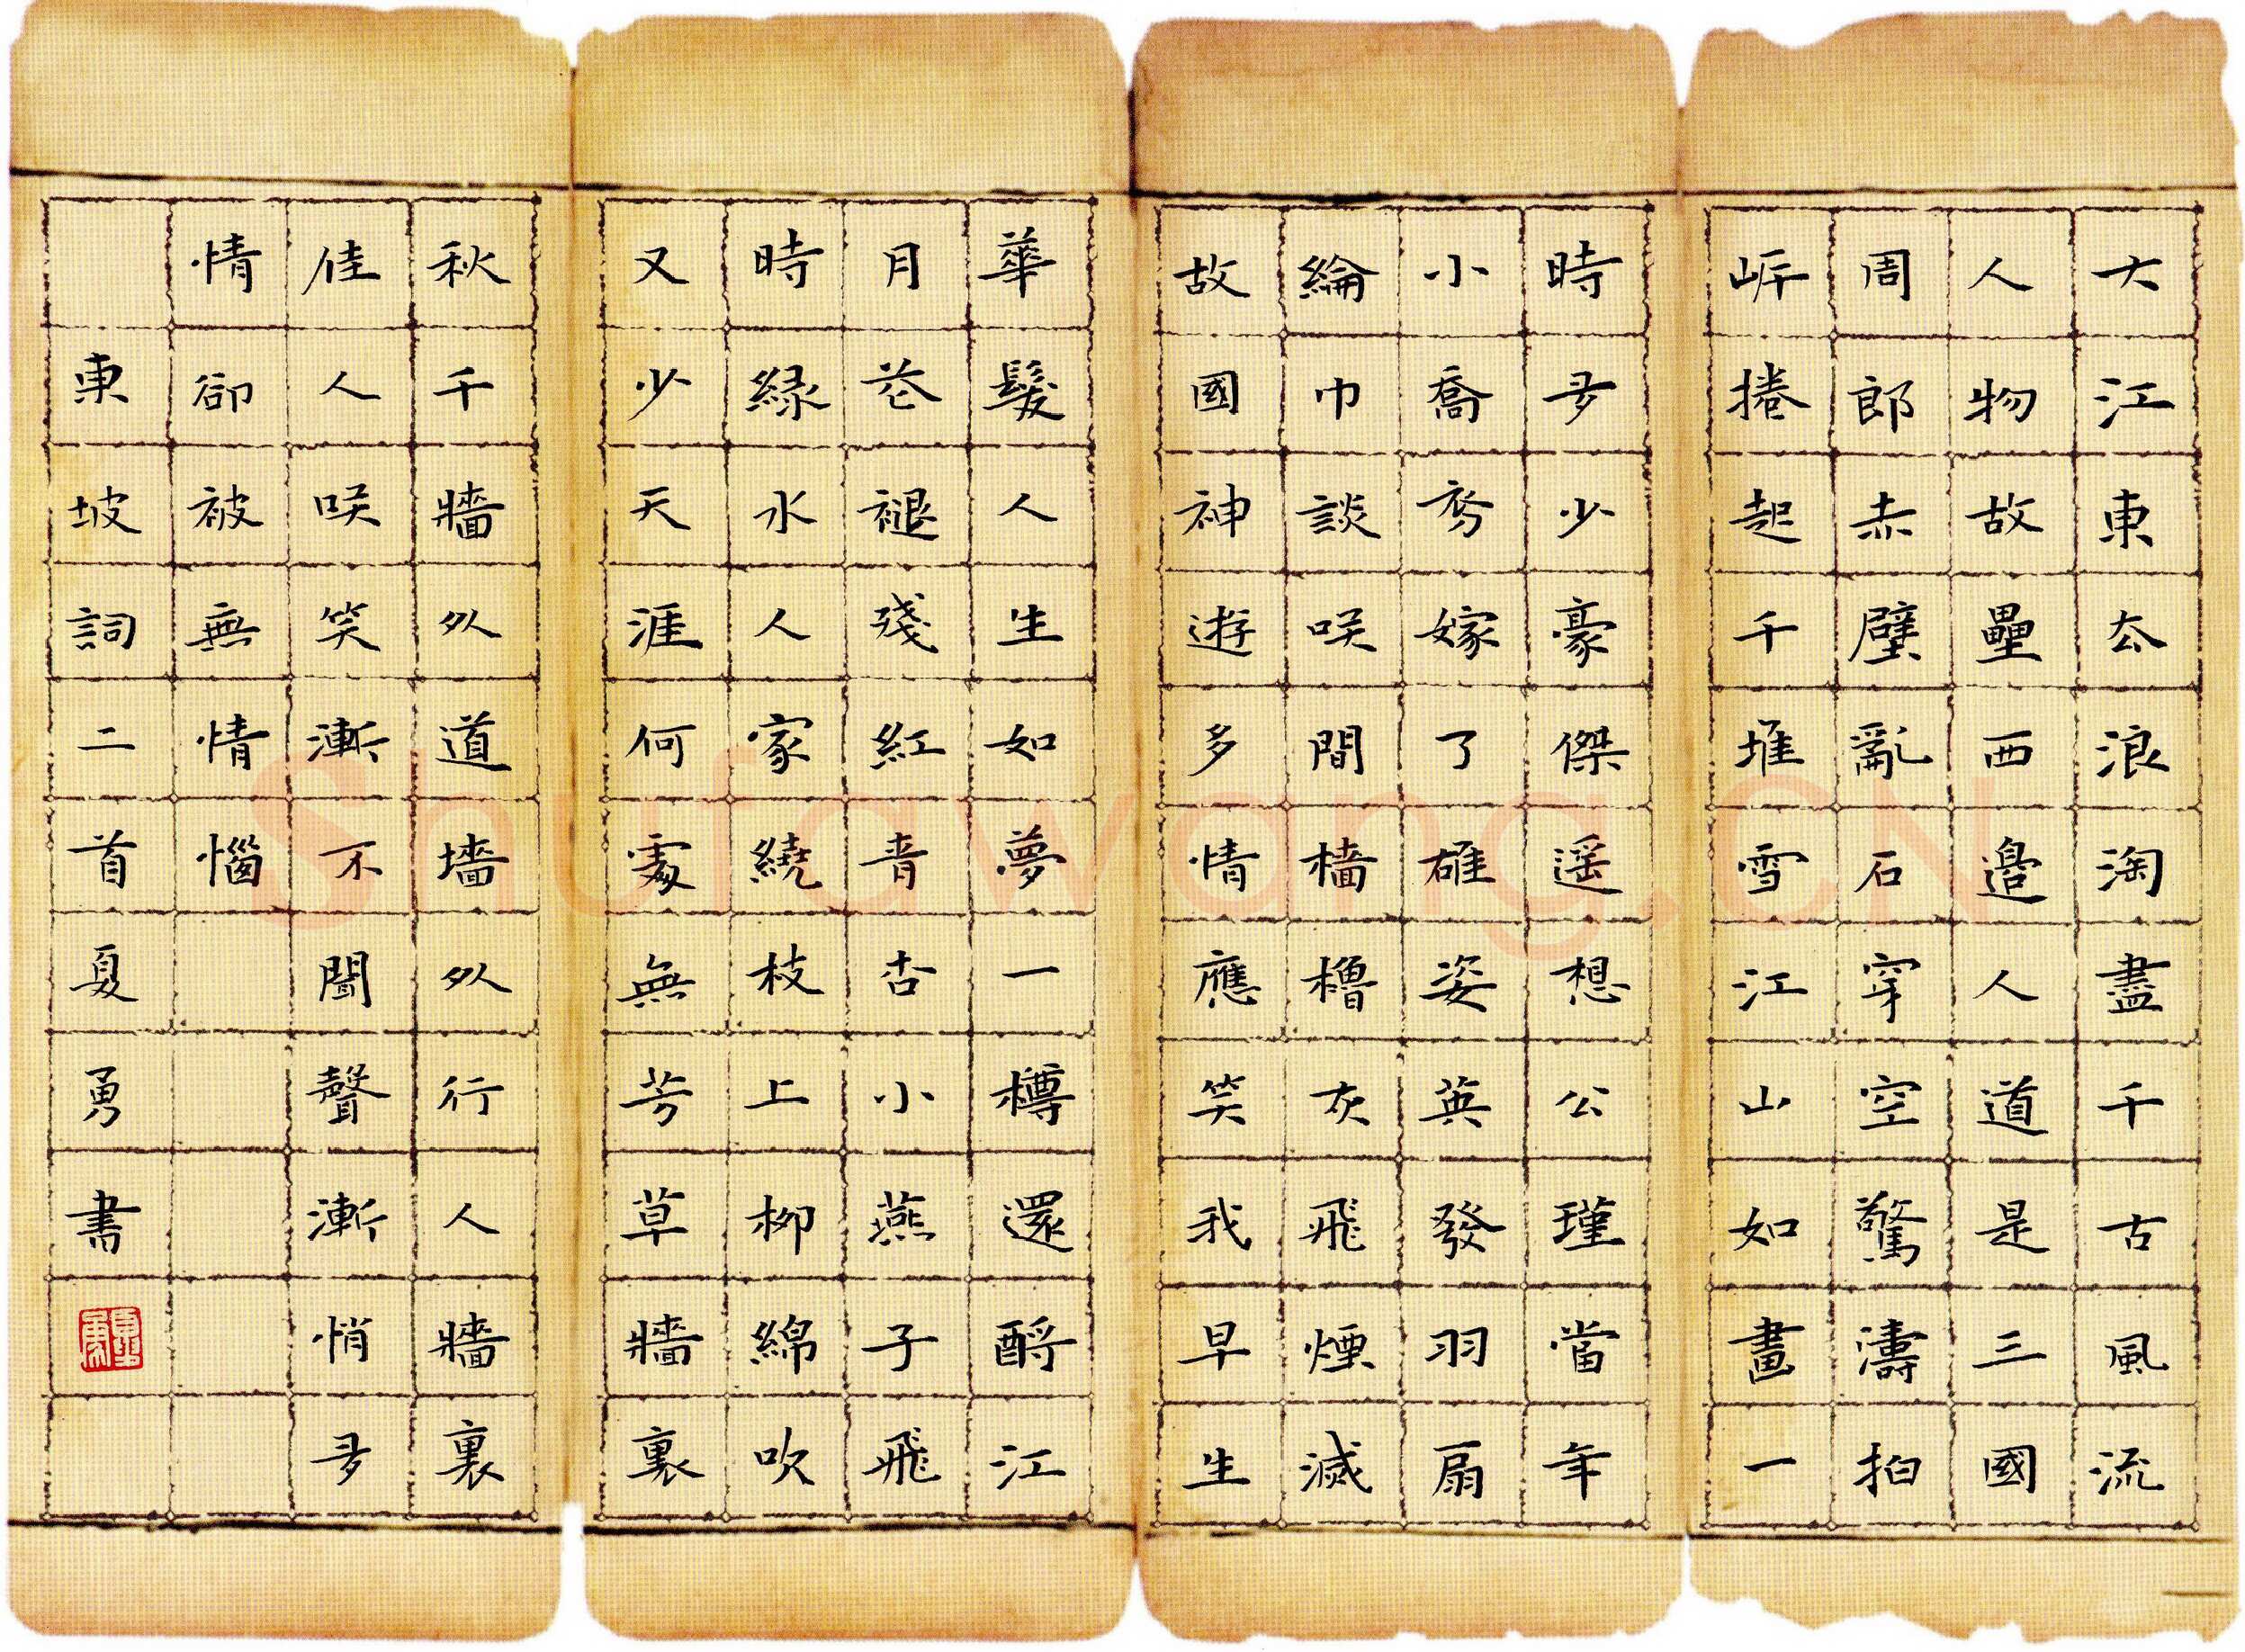 大江東去浪淘盡千古風流
人物故壘西邊人道是三國
周郎赤壁亂石穿空驚濤拍
岸捲起千堆雪江山如畫一
時多少豪傑遥想公瑾當年
小喬初嫁了雄姿英發羽扇
綸巾談咲間檣櫓灰飛煙滅
故國神遊多情應笑我早生
華髮人生如夢一樽還酹江
月花褪殘紅青杏小燕子飛
時緑水人家繞枝上柳綿吹
又少天涯何處無芳草牆裏
秋千牆外道墻外行人牆裏
佳人咲笑漸不聞聲漸悄多
情卻被無情惱
東坡詞二首夏勇書
Shufawang.CN